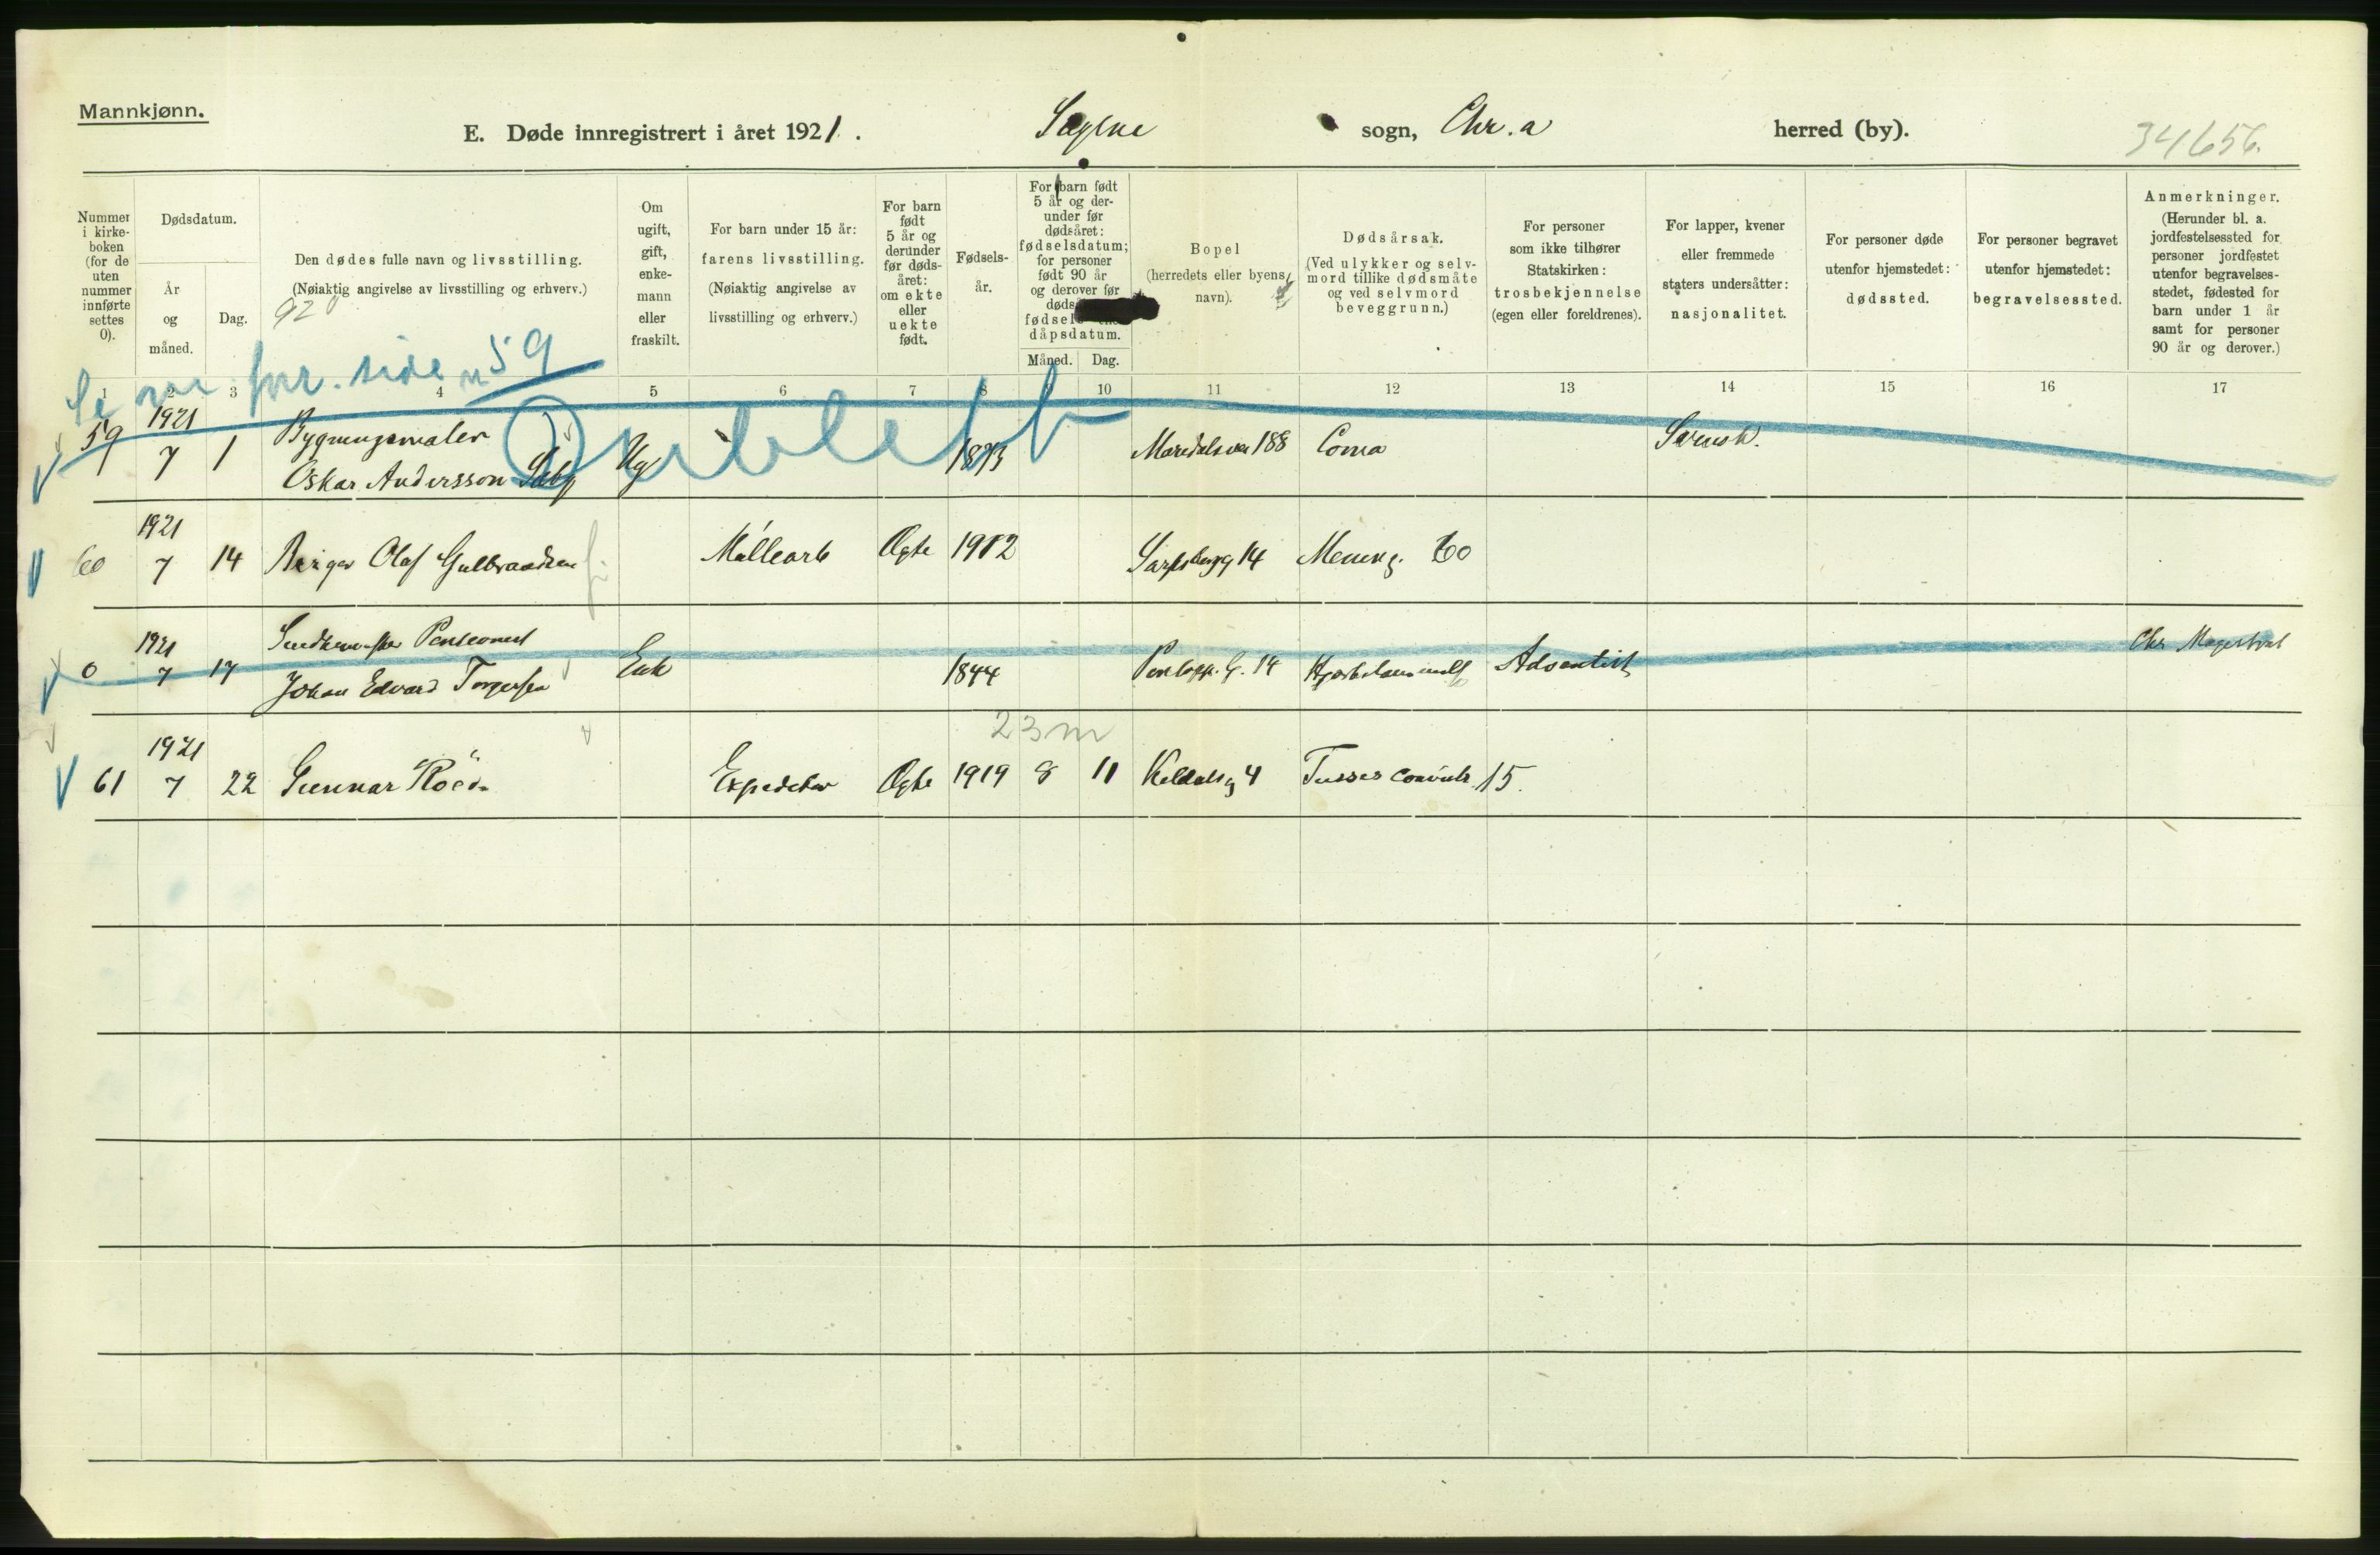 Mannkjønn.
E. Døde innregistrert i året 1921. Sagene sogn, Chr.a herred (by).
34656.
Nummer i kirke-boken (for de uten nummer innførte settes 0).
Dødsdatum.
År og måned.
Dag.
Den dødes fulle navn og livsstilling.
(Nøiaktig angivelse av livsstilling og erhverv.)
920
Om ugift, gift, enke-mann eller fraskilt.
For barn under 15 år: farens livsstilling.
(Nøiaktig angivelse av livsstilling og erhverv.)
For barn født 5 år og derunder før døds-året: om ekte eller uekte født.
Fødsels-år.
For barn født 5 år og der-under før dødsåret: fødselsdatum; for personer født 90 år og derover før
fødsels
dåpsdatum.
Måned. Dag.
Bopel
(herredets eller byens navn).
Dødsårsak.
(Ved ulykker og selv-mord tillike dødsmåte og ved selvmord beveggrunn.)
For personer som ikke tilhører Statskirken: trosbekjennelse (egen eller foreldrenes).
For lapper, kvener eller fremmede staters undersåtter: nasjonalitet.
For personer døde utenfor hjemstedet: dødssted.
For personer begravet utenfor hjemstedet: begravelsessted.
Anmerkninger.
(Herunder bl. a. jordfestelsessted for personer jordfestet utenfor begravelses-stedet, fødested for barn under 1 år samt for personer 90 år og derover.)
Se forr. side n 59
1 2 3 4 5 6 7 8 9 10 11 12 13 14 15 16 17
Dublett
1921
59 7 1 Bygningsmaler
Oskar Andersson Ug 1873 Maridalsvei 188 Coma Svensk.
1921
60 7 14 Birger Olaf Gulbrandsen Møllearb Ægte 1912 Sarpsborgg 14 Mening. 60
1921
0 7 17 Pensionist
Johan Edvard Torgersen Enk 1844 14 Adventist Chr Magistrat
23 m
1921
61 7 22 Gunnar Röed Expeditør Ægte 1919 8 11 Keldalsg 4 Tusses convuls. 15.